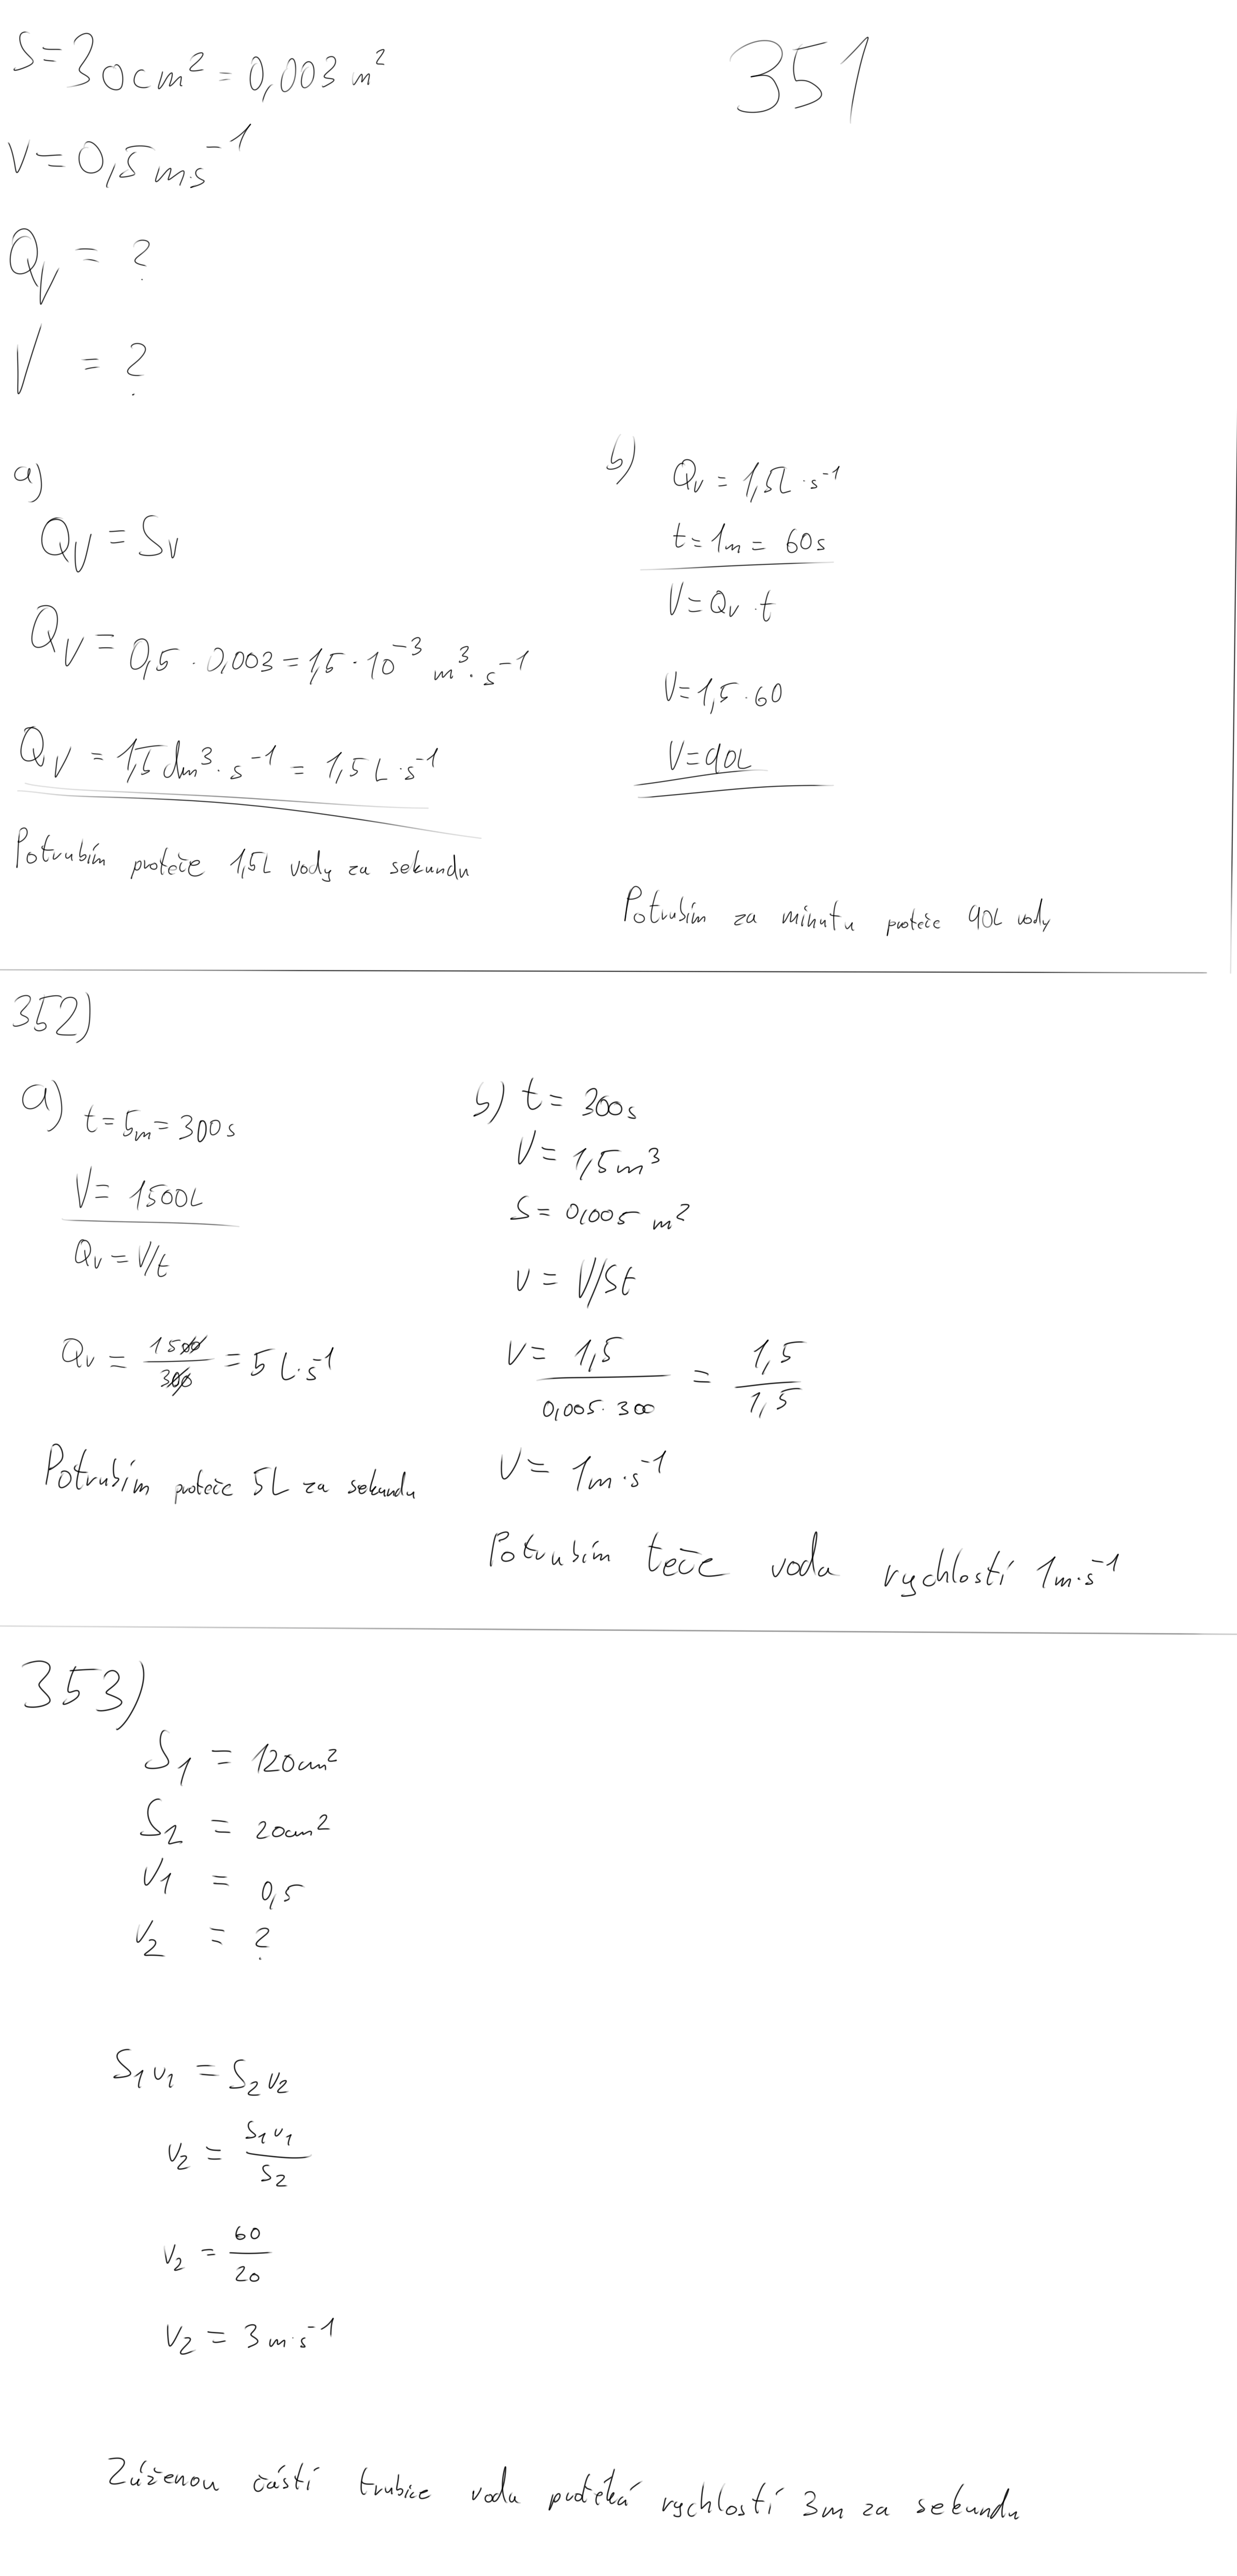 S=30cm² = 0,003 m²
351
v=0,5 ms⁻¹
Qv = ?
V = ?
a)
Qv = Sv
Qv = 0,5 · 0,003 = 1,5 · 10⁻³ m³ · s⁻¹
Qv = 1,5 dm³ · s⁻¹ = 1,5 L · s⁻¹
Potrubím proteče 1,5L vody za sekundu
b)
Qv = 1,5L · s⁻¹
t = 1m = 60s
V = Qv · t
V = 1,5 · 60
V = 90L
Potrubím za minutu proteče 90L vody
352)
a) t = 5m = 300s
V = 1500L
Qv = V/t
Qv = 1500/300 = 5 L·s⁻¹
Potrubím proteče 5L za sekundu
b) t = 300s
V = 1,5m³
S = 0,005 m²
v = V/St
v = 1,5/0,005·300 = 1,5/1,5
v = 1m·s⁻¹
Potrubím teče voda rychlostí 1m·s⁻¹
353)
S₁ = 120cm²
S₂ = 20cm²
v₁ = 0,5
v₂ = ?
S₁v₁ = S₂v₂
v₂ = S₁v₁/S₂
v₂ = 60/20
v₂ = 3m·s⁻¹
Zúženou částí trubice voda protéká rychlostí 3m za sekundu